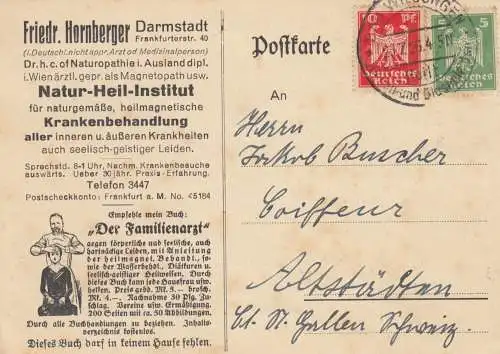 Friedr. Hornberger Darmstadt
Frankfurterstr. 40
(i. Deutschl. nicht appr. Arzt od Medizinalperson)
Dr. h. c. of Naturopathie i. Ausland dipl.
i. Wien ärztl. gepr. als Magnetopath usw.
Natur-Heil-Institut
für naturgemäße, heilmagnetische
Krankenbehandlung
aller inneren u. äußeren Krankheiten
auch seelisch-geistiger Leiden.
Sprechstd. 8-1 Uhr, Nachm. Krankenbesuche
auswärts. Ueber 30 jähr. Praxis-Erfahrung.
Telefon 3447
Postscheckkonto: Frankfurt a. M. No. 45184
Empfehle mein Buch:
„Der Familienarzt"
gegen körperliche und seelische, auch
hartnäckige Leiden, mit Anleitung
der heilmagnet. Behandl., so-
wie der Wasserbehdl., Diätkuren u.
seelisch-geistiger Heilweisen. Durch
dieses Buch kann jede Hausfrau usw.
helfen. Preis gebd. Mk. 5.— brosch.
Mk. 4.— Nachnahme 30 Pfg. Zu-
schlag. Vereine usw. Ermäßigung.
200 Seiten mit ca. 50 Abbildungen.
Durch alle Buchhandlungen zu beziehen. Inhalts-
verzeichnis kostenlos.
Dieses Buch darf in keinem Hause fehlen.
Postkarte
10 Pf.
Deutsches
Reich
5
Deutsches
Reich
An
Herrn
Jakob Buscher
Coiffeur
Altstädten
Ct. St. Gallen Schweiz.